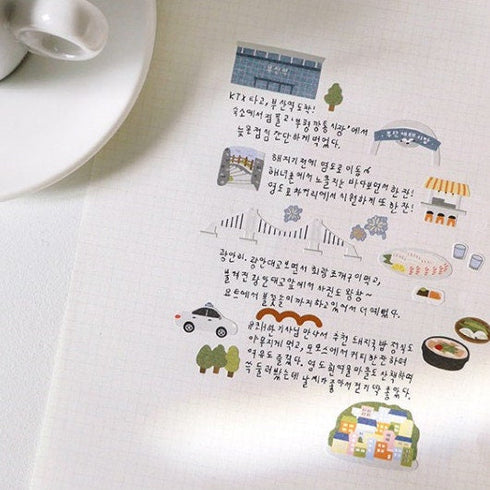 부산역
KTX 타고, 부산역 도착!
숙소에서 짐 풀고 '부평깡통시장'에서
늦은 점심 간단하게 먹었다.
해지기 전에 영도로 이동~
해녀촌에서 노을지는 바다보면서 한 잔!
영도포차거리에서 시원하게 또 한 잔!
광안리. 광안대교보면서 회랑 조개구이먹고,
불 켜진 광안대교앞에서 사진도 왕창~
요트에서 불꽃놀이까지 하고있어서 더 예뻤다.
택시기사님 만나서 추천 돼지국밥 정식도
야무지게 먹고, 에서 커피 한 잔 하며
여유도 즐겼다. 영도 흰여울마을도 산책하며
쓱 둘러봤는데 날씨가 좋아서 걷기 딱 좋았다.